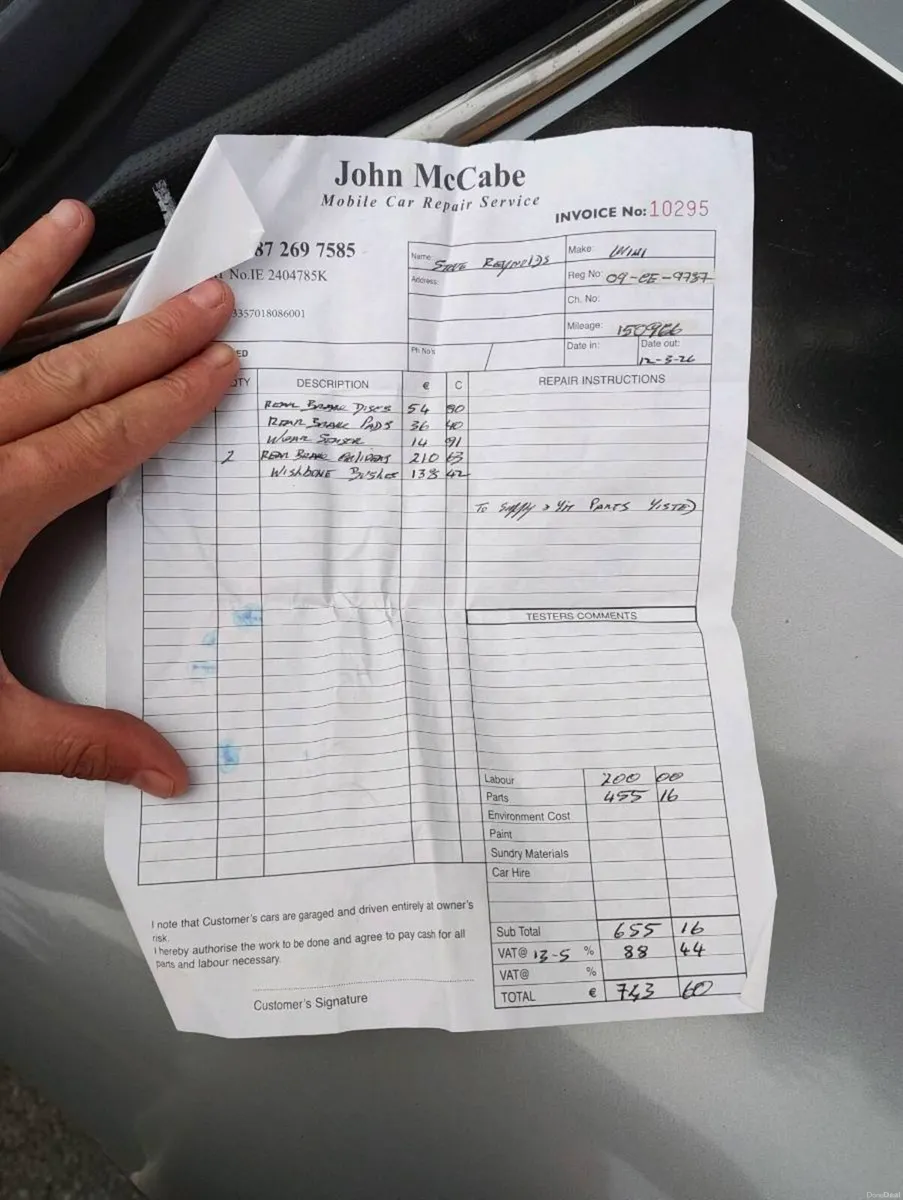 John McCabe
Mobile Car Repair Service
INVOICE No: 10295
87 269 7585
No.IE 2404785K
3357018086001
Name: STEVE REYNOLDS
Address:
Ph No's
Make: MINI
Reg No: 09-CE-9737
Ch. No:
Mileage: 150966
Date in:
Date out:
12-3-26
ED
QTY DESCRIPTION € C REPAIR INSTRUCTIONS
REAR BRAKE DISCS 54 80
REAR BRAKE PADS 36 40
WEAR SENSOR 14 91
2 REAR BRAKE CALIPERS 210 63
WISHBONE BUSHES 138 42
TO SUPPLY & FIT PARTS LISTED
TESTERS COMMENTS
Labour 200 00
Parts 455 16
Environment Cost
Paint
Sundry Materials
Car Hire
Sub Total 655 16
VAT@ 13-5 % 88 44
VAT@ %
TOTAL € 743 60
I note that Customer's cars are garaged and driven entirely at owner's
risk.
I hereby authorise the work to be done and agree to pay cash for all
parts and labour necessary.
Customer's Signature
DoneDeal